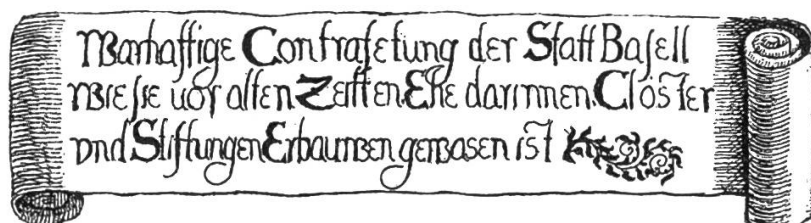 Warhafftige Contrafetung der Statt Basell
wie sie vor alten Zeitten Ehe darinnen Clöster
vnd Stifftungen Erbauwen gewasen ist